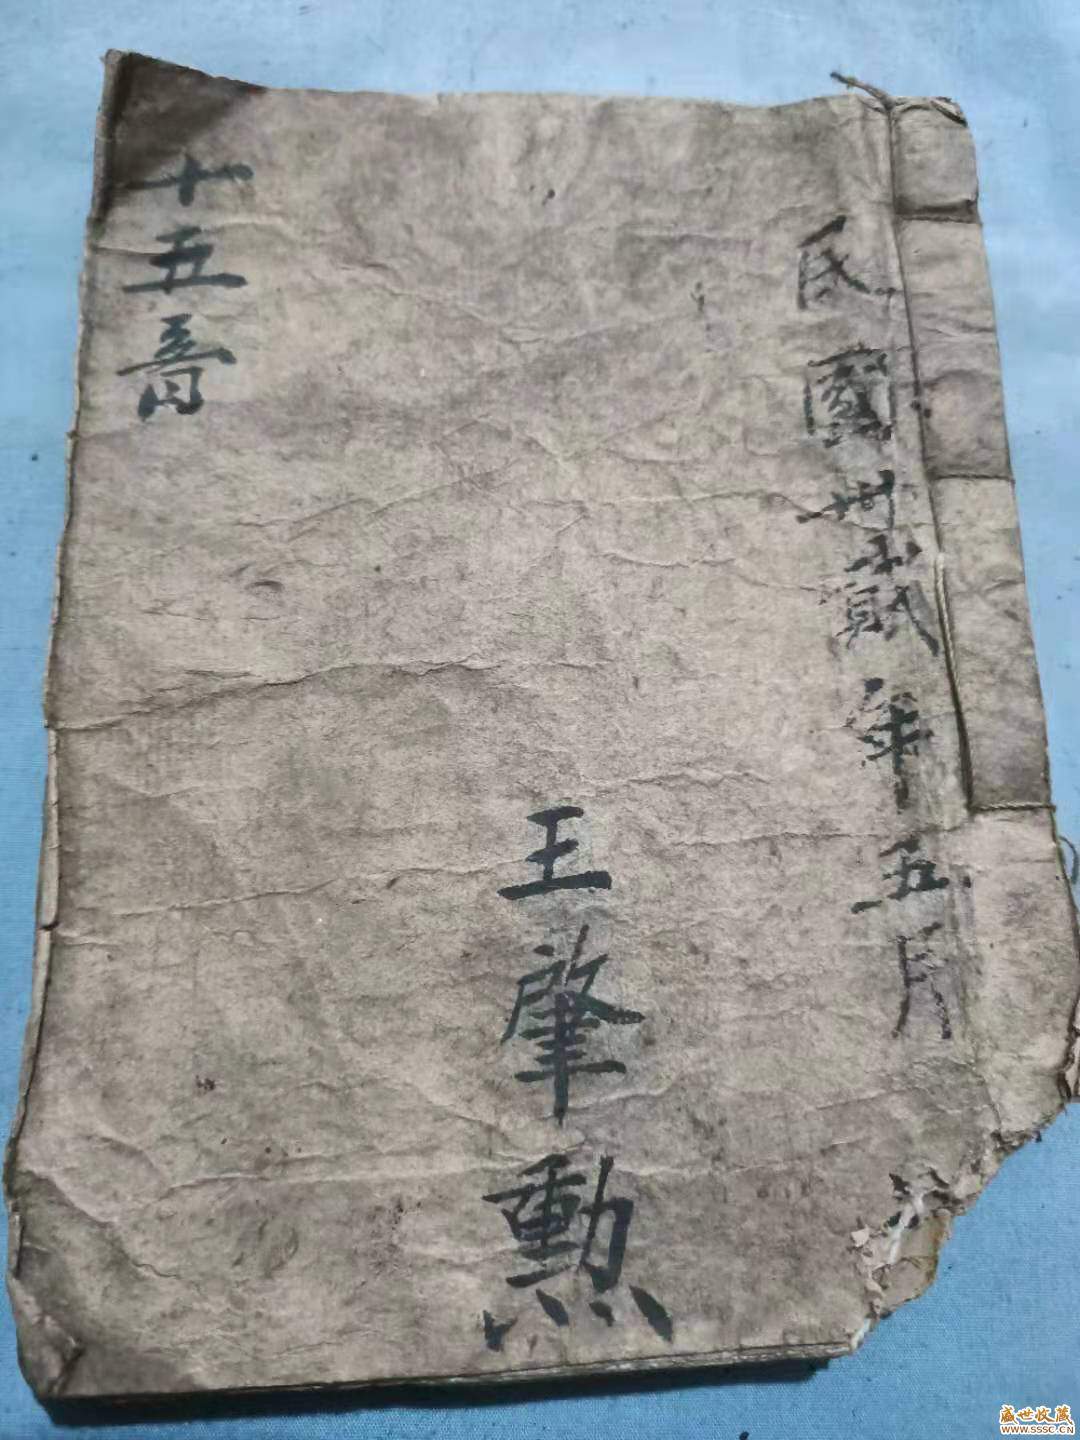 民國卅貳年五月
王肇勲
十五音
盛世收藏
WWW.SSSC.CN